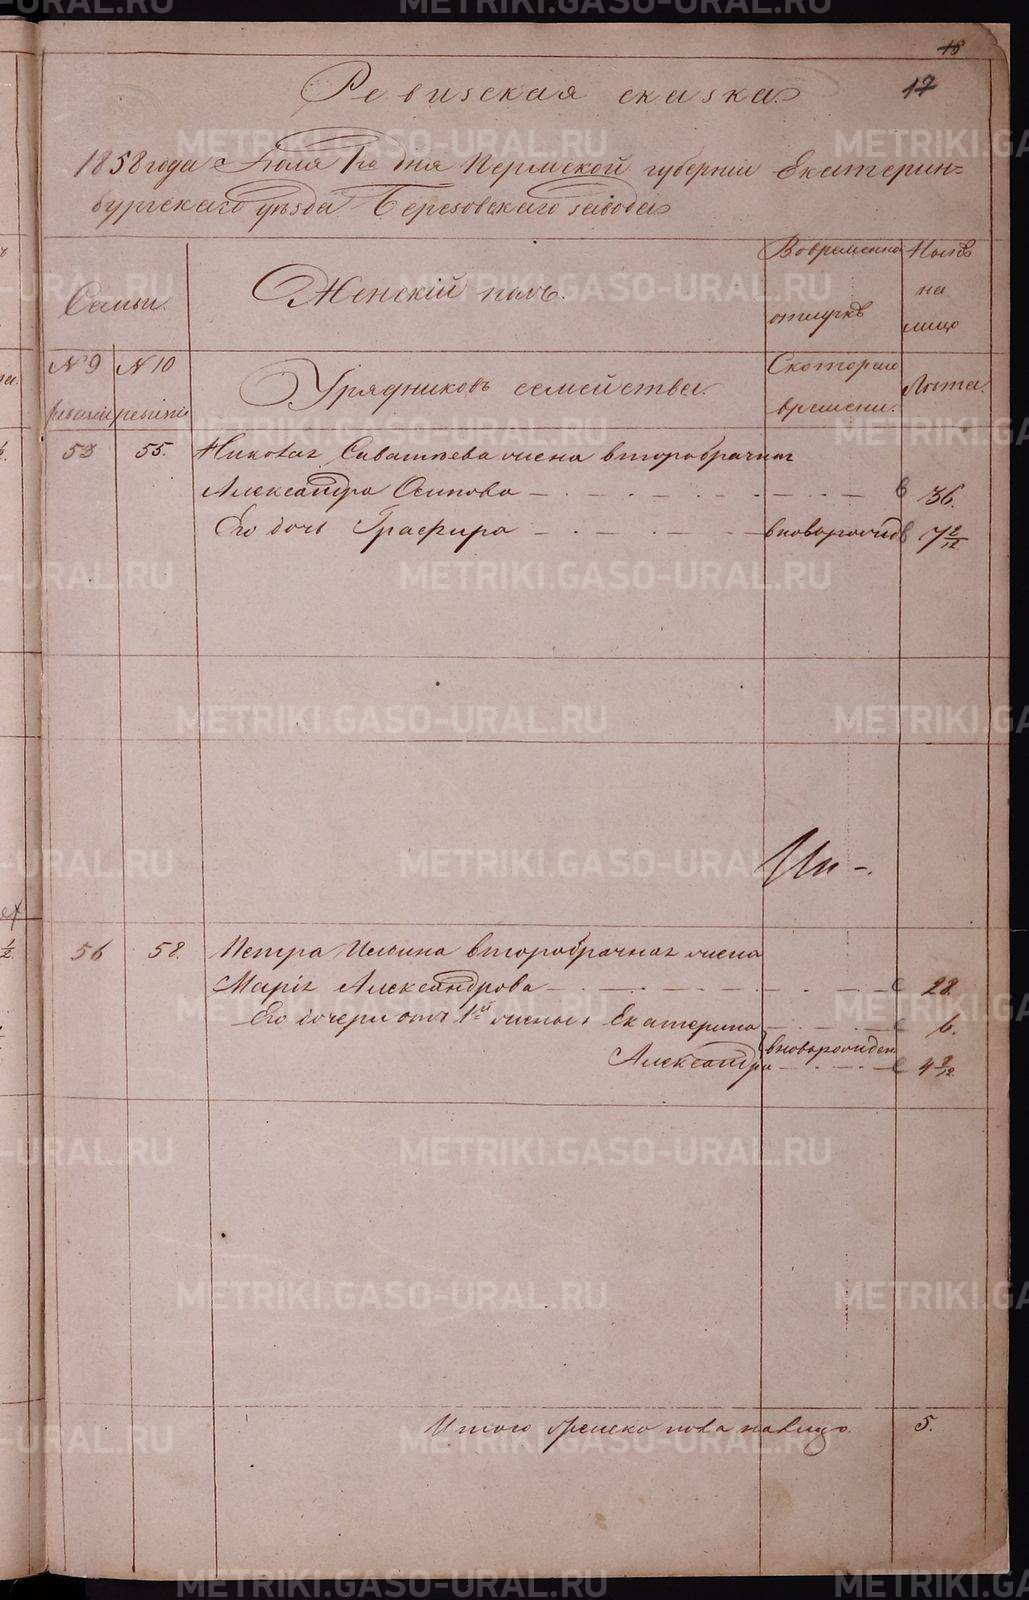 18
17
Ревизская сказка
1858 года Июля 1го дня Пермской губернии Екатерин=
бургскаго уезда Березовскаго завода
Семьи.
Женскій полъ.
Во временно
отлучкѣ
Ныне
на
лицо
№ 9
ревизіи
№ 10
ревизіи
Урядниковъ семейства
С котораго
времени.
Лета.
53 55. Николая Саватьева жена второбрачная
Александра Осипова 36.
Его дочь Графира вновьрожд 7 2/12
56 58. Петра Ильина второбрачная жена
Марія Александрова 28.
Его дочери отъ 1й жены Екатерина 6.
вноворожден
Александра 4 2/12
Итого женско пола налицо 5.
METRIKI.GASO-URAL.RU